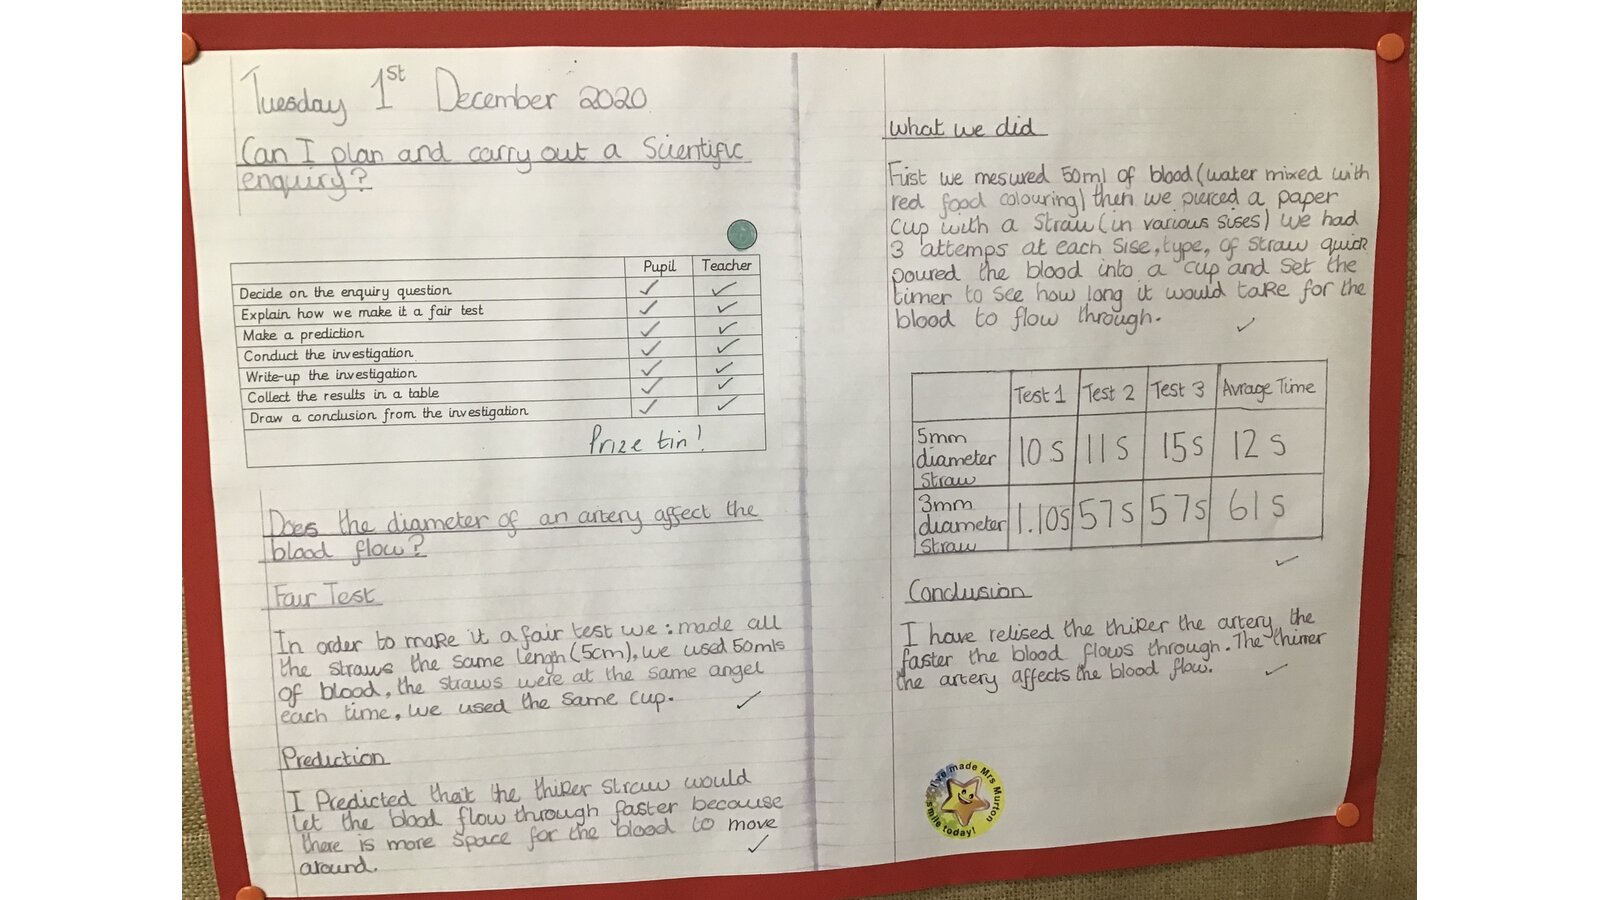 Tuesday 1st December 2020
Can I plan and carry out a Scientific
enquiry?
Pupil Teacher
Decide on the enquiry question ✓ ✓
Explain how we make it a fair test ✓ ✓
Make a prediction ✓ ✓
Conduct the investigation ✓ ✓
Write-up the investigation ✓ ✓
Collect the results in a table ✓ ✓
Draw a conclusion from the investigation ✓ ✓
Prize tin!
Does the diameter of an artery affect the
blood flow?
Fair Test
In order to make it a fair test we: made all
the straws the same lengh (5cm), we used 50mls
of blood, the straws were at the same angel
each time, we used the same cup.
Prediction
I Predicted that the thiker straw would
let the blood flow through faster because
there is more space for the blood to move
around.
What we did
First we mesured 50ml of blood (water mixed with
red food colouring) then we pierced a paper
cup with a straw (in various sises) we had
3 attemps at each sise, type, of straw quick
poured the blood into a cup and set the
timer to see how long it would take for the
blood to flow through.
Test 1 Test 2 Test 3 Avrage Time
5mm
diameter
straw
10 s 11 s 15 s 12 s
3mm
diameter
straw
1.10s 57s 57s 61 s
Conclusion
I have relised the thiker the artery the
faster the blood flows through. The thinner
the artery affects the blood flow.
I've made Mrs Murton
smile today!